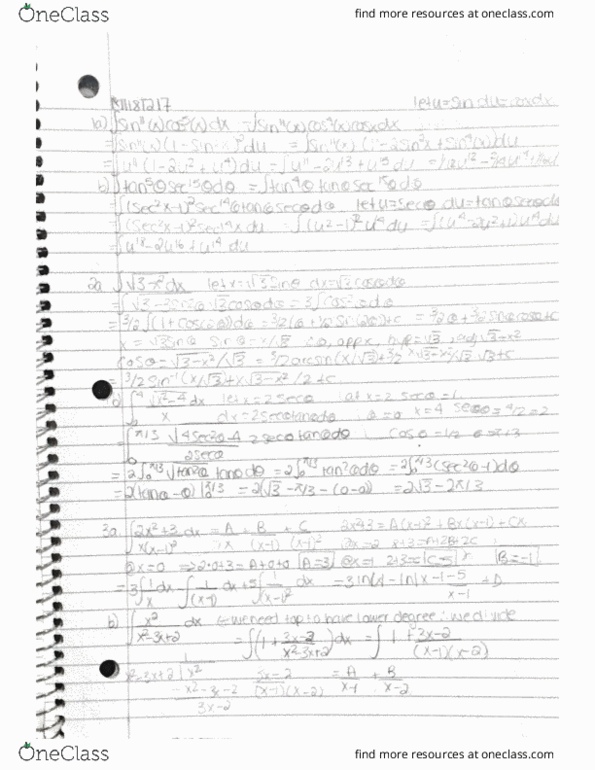 OneClass
find more resources at oneclass.com
let u=sin du=cosdx
1a) ∫sin¹¹(x)cos⁵(x)dx = ∫sin¹¹(x)cos⁴(x)cosxdx
= ∫sin¹¹(x)(1-sin²x)²dx = ∫sin¹¹(x)(1-2sin²x+sin⁴(x))du
= ∫u¹¹(1-2u²+u⁴)du = ∫u¹¹-2u¹³+u¹⁵du
b) ∫tan⁵θsec¹⁵θdθ = ∫tan⁴θtanθsec¹⁵θdθ
= ∫(sec²x-1)²sec¹⁴θtanθsecθdθ let u=secθ du=tanθsecθdθ
= ∫(sec²x-1)²sec¹⁴xdu = ∫(u²-1)²u¹⁴du = ∫(u⁴-2u²+1)u¹⁴du
= ∫u¹⁸-2u¹⁶+u¹⁴du
2a ∫√3-x²dx let x=√3sinθ dx=√3cosθdθ
= ∫√3-3sin²θ √3cosθdθ = 3∫cos²θdθ
= 3/2∫(1+cos(2θ))dθ = 3/2(θ+1/2sin(2θ))+c = 3/2θ+3/2sinθcosθ+c
x=√3sinθ sinθ=x/√3 hyp=√3, adj√3-x²
cosθ=√3-x²/√3 = 3/2arcsin(x/√3)+3/2
= 3/2sin⁻¹(x/√3)+x√3-x²/2+c
b) ∫⁴√x²-4dx let x=2secθ at x=2 secθ=1
x dx=2secθtanθdθ θ=0 x=4 secθ=4/2=2
= ∫π/3 √4sec²θ-4 2secθtanθdθ cosθ=1/2 θ=π/3
2secθ
= 2∫₀π/3√tan²θ tanθdθ = 2∫₀π/3tan²θdθ = 2∫₀π/3(sec²θ-1)dθ
= 2(tanθ-θ)|₀π/3 = 2(√3-π/3-(0-0)) = 2√3-2π/3
3a. ∫2x²+3 dx = A + B + C 2x²+3=A(x-1)²+Bx(x-1)+Cx
x(x-1)² x (x-1) (x-1)²
@x=0 =>2·0+3=A+0+0 A=3 @x=1 2+3=C C=5 B=-1
= 3∫1dx-∫1dx+5∫1 dx = 3ln|x|-ln|x-1|-5 +D
x (x-1) (x-1)² x-1
b) ∫x² dx ← we need top to have lower degree ∴ we divide
x²-3x+2 = ∫(1+3x-2)dx = ∫1+3x-2
x²-3x+2 (x-1)(x-2)
1
x²-3x+2 x² 3x-2 = A + B
-x²-3x-2 (x-1)(x-2) x-1 x-2
3x-2
OneClass
find more resources at oneclass.com